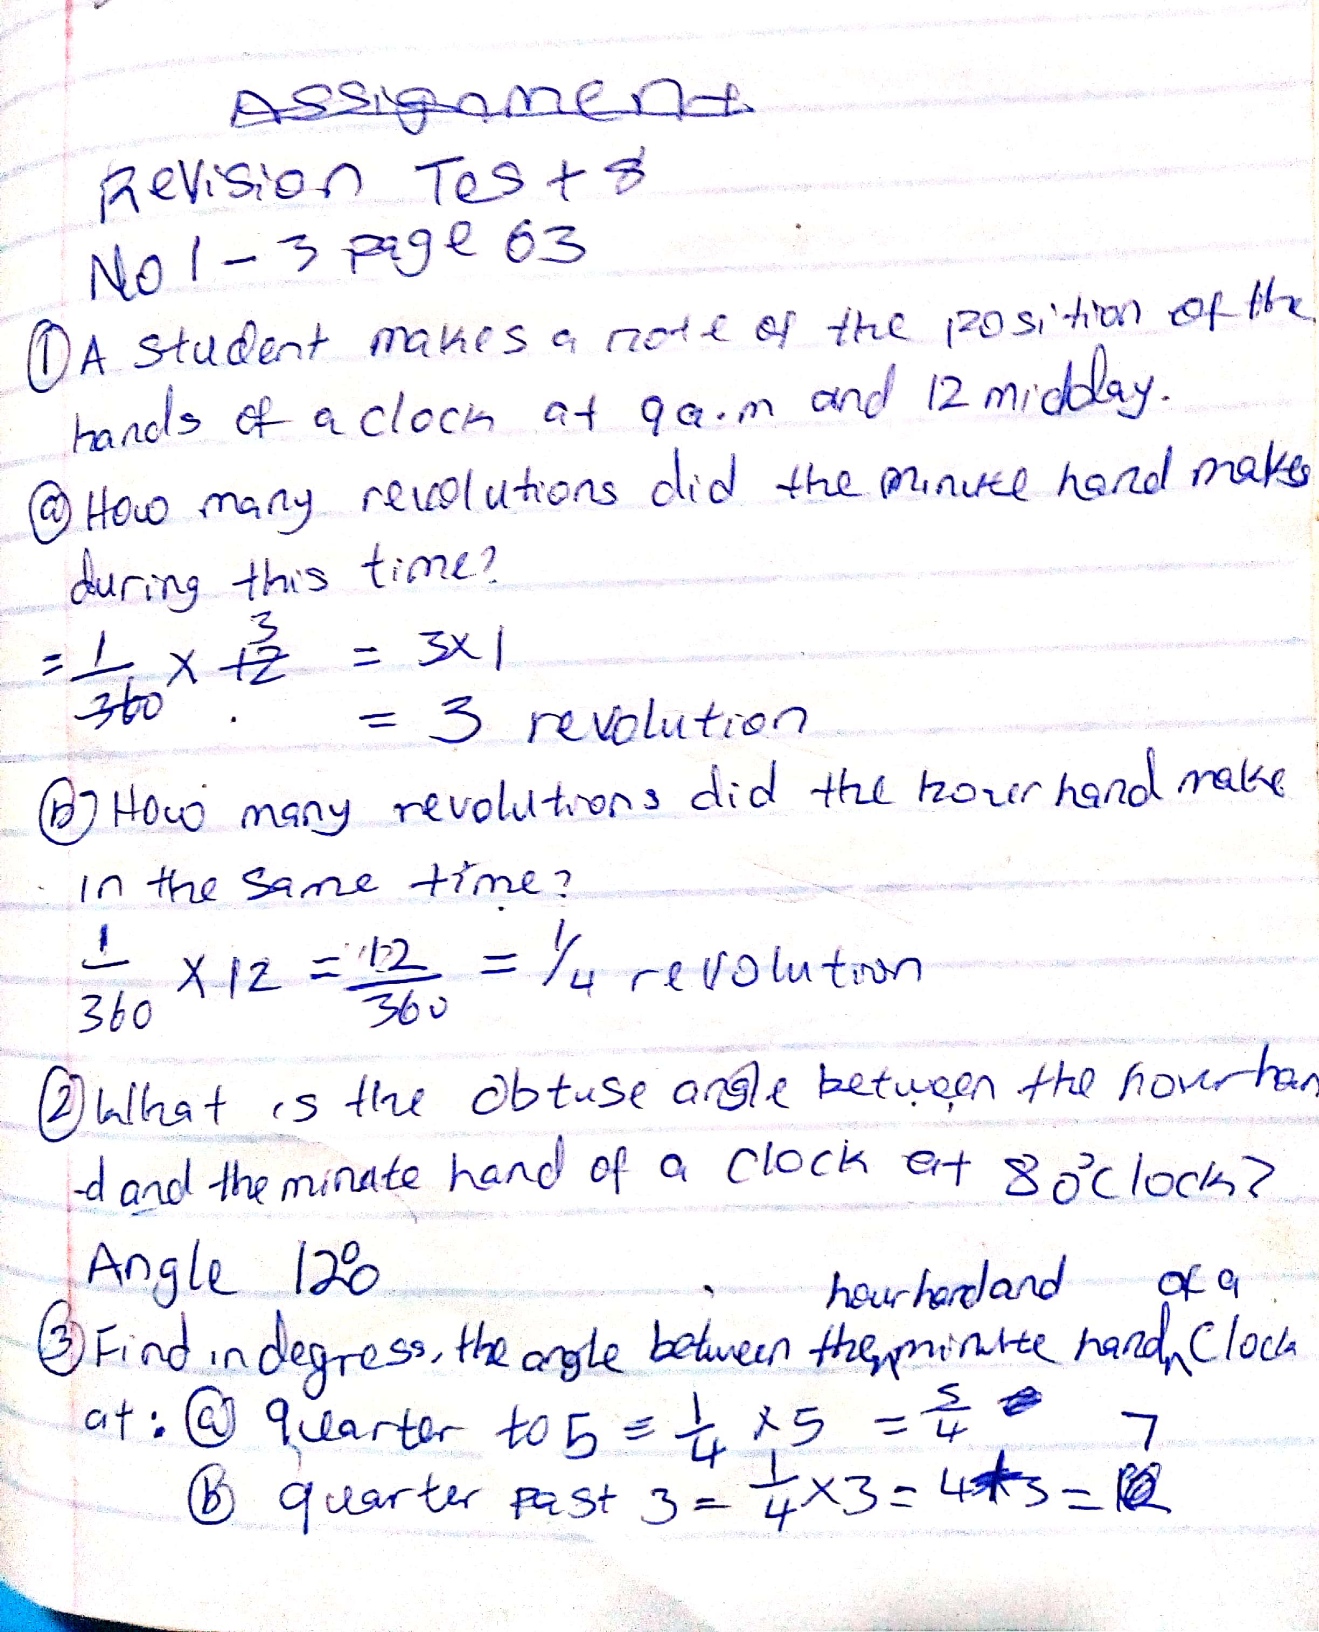 Assignment
Revision Test 8
No 1 - 3 page 63
① A student makes a note of the position of the
hands of a clock at 9a.m and 12 midday.
ⓐ How many revolutions did the minute hand makes
during this time?
= 1/360 × 12 3 = 3×1
= 3 revolution
Ⓑ How many revolutions did the hour hand make
in the same time?
1/360 × 12 = 12/360 = 1/4 revolution
② What is the obtuse angle between the hour han
-d and the minute hand of a clock at 8 o'clock?
Angle 120°
hour hand and of a
③ Find in degress, the angle between the minutte hand Clock
at: ⓐ quarter to 5 = 1/4 × 5 = 5/4
Ⓑ quarter past 3 = 1/4 × 3 = 4+3 = 7